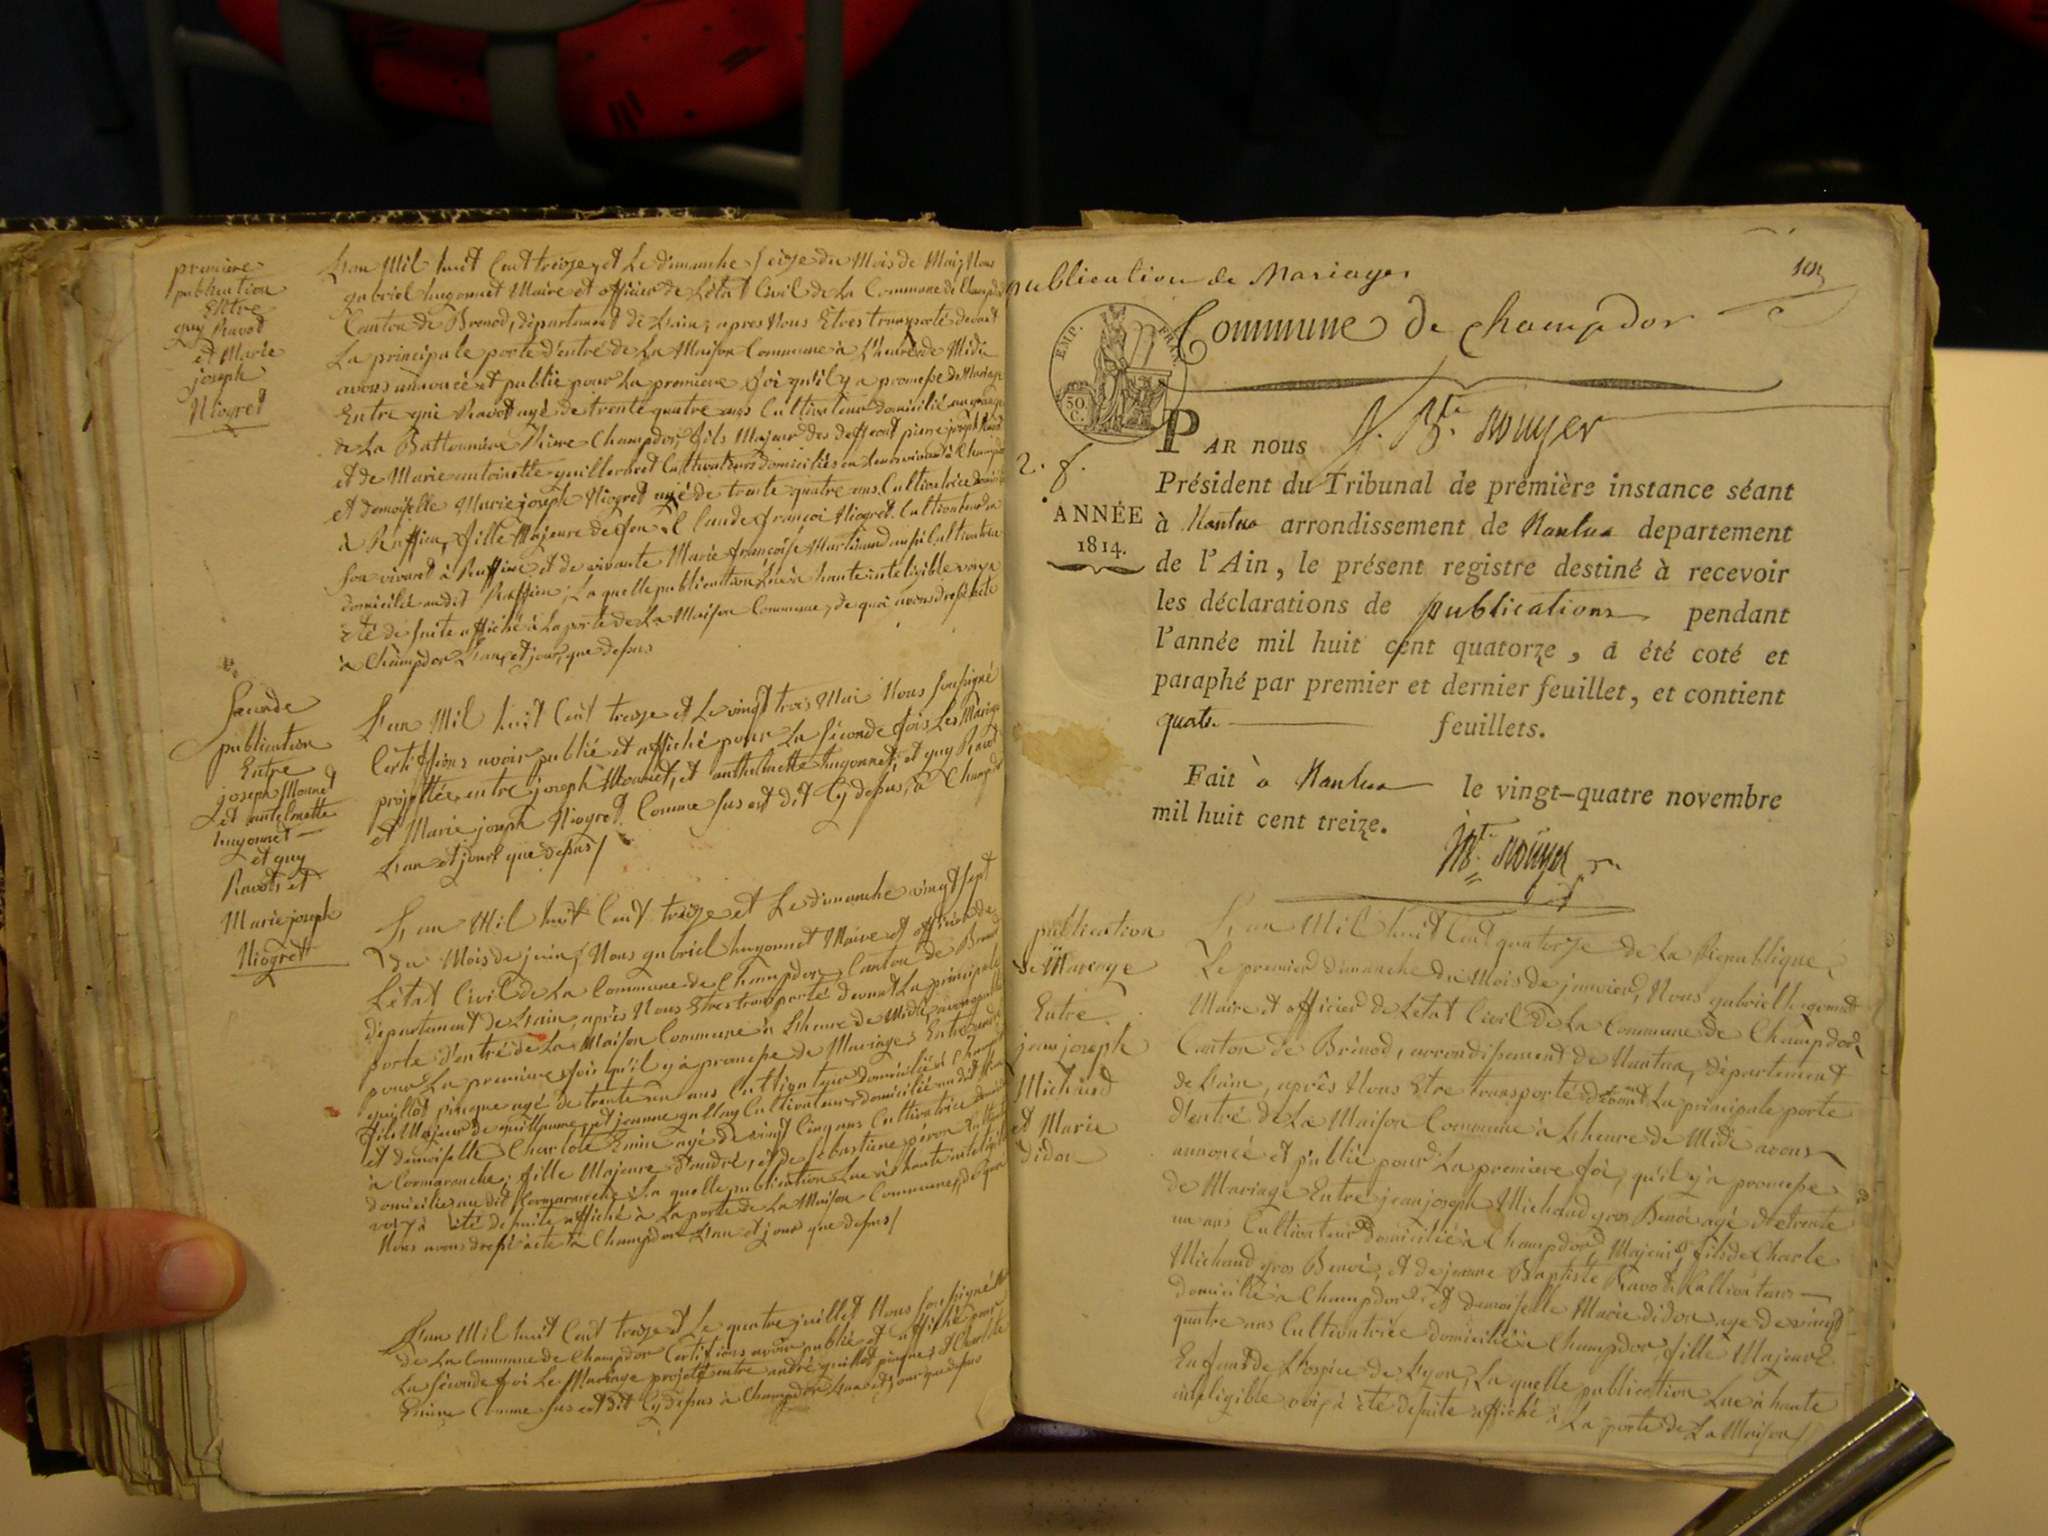 première
publication
Entre
guy Ravot
et Marie
joseph
Niogret
L'an Mil huit Cent treize, et Le dimanche seize du Mois de Mai, Nous
gabriel hugonnet Maire et officier de L'état Civil de La Commune de Champdor
Canton de Brenod, département de L'ain, apres Nous Etres transporté devant
La principale porte d'entré de La Maison Commune à L'heure de Midi
avons annoncé et publié pour La premiere foi qu'il y a promesse de Mariage
Entre gui Ravot agé de trente quatre ans Cultivateur domicilié
de La Champdor, fils Majeur des deffunt pierre joseph Ravot
et de Marie antoinette guillermet Cultivateurs domiciliés
et demoiselle Marie joseph Niogret agé de trente quatre ans Cultivatrice
à Ruffieu, fille Majeure de feu Claude françoi Niogret Cultivateur
son vivant à Ruffieu et de vivante Marie françoise Martinand aussi Cultivatrice
domicilié audit Ruffieu, La quelle publication Lue à haute inteligible voix
Eté de suite affiché à La porte de La Maison Commune, de quoi avons dressé acte
à Champdor L'an, et jour, que dessus
Seconde
publication
Entre
joseph Monnet
et antelmette
hugonnet
et guy
Ravot et
Marie joseph
Niogret
L'an Mil huit Cent treize et Le vingt trois Mai Nous soussigné
Certiffions avoir publié et affiché pour La séconde fois Les Mariage
projettée, entre joseph Monnet, et anthelmette hugonnet, et guy Ravot
et Marie joseph Niogret Comme sus est dit Cy dessus, à Champdor
L'an et jour que dessus /
L'an Mil huit Cent treize et Le dimanche vingt sept
du Mois de juin, Nous gabriel hugonnet Maire et officier de
L'état Civil de La Commune de Champdor, Canton de Brenod
département de L'ain, après Nous Etres transporté devant La principale
porte d'entré de La Maison Commune à L'heure de Midi, avons publié
pour La premiere fois qu'il y à promesse de Mariage Entre andré
guillot pingue agé de trente un ans Cultivateur domicilié à Champdor
fils Majeur de guillaume, et jeanne gallay Cultivateurs domicilié audit lieu
et demoiselle Charlote Emin agé de vingt Cinq ans Cultivatrice
à Cormaranche, fille Majeure d'andré, et de Sébastiene péron
domiciliés au dit Cormaranche, La quelle publication Lue à haute inteligible
voix à été de suite affiché à La porte de La Maison Commune, de quoi
Nous avons dressé acte à Champdor L'an et jour que dessus /
L'an Mil huit Cent treize et Le quatre juillet Nous soussigné
de La Commune de Champdor Certifions avoir publié et affiché pour
La séconde foi Le Mariage projetté entre andré guillot pingue, et Charlote
Emin Comme sus est dit Cy dessus à Champdor L'an et jour que dessus
publication de Mariages
Commune de Champdor
EMP. FRAN.
50 C.
PAR nous J. Bte. Rouyer
2. f.
ANNÉE
1814.
Président du Tribunal de première instance séant
à Nantua arrondissement de Nantua departement
de l'Ain, le présent registre destiné à recevoir
les déclarations de publications pendant
l'année mil huit cent quatorze, a été coté et
paraphé par premier et dernier feuillet, et contient
quatre feuillets.
Fait à Nantua le vingt-quatre novembre
mil huit cent treize.
Bte. Rouyer
publication
de Mariage
Entre
jean joseph
Michaud
et Marie
didon
L'an Mil huit Cent quatorze de La République
Le premier dimanche du Mois de janvier, Nous gabriel hugonnet
Maire et officier de L'état Civil de La Commune de Champdor
Canton de Brénod, arrondissement de Nantua, département
de L'ain, après Nous Etre transporté devant La principale porte
d'entré de La Maison Commune à L'heure de Midi avons
annoncé et publié pour La premiere foi, qu'il y a promesse
de Mariage Entre jean joseph Michaud gros Benoi agé de trente
un ans Cultivateur domicilié à Champdor, Majeur fils de Charle
Michaud gros Benoi, et de jeanne Baptiste Ravot Cultivateurs
domicilié à Champdor, et demoiselle Marie didon agé de vingt
quatre ans Cultivatrice domicilié à Champdor, fille Majeure
Enfant de L'hospice de Lyon, La quelle publication Lue à haute
inteligible voix à été de suite affiché à La porte de La Maison /